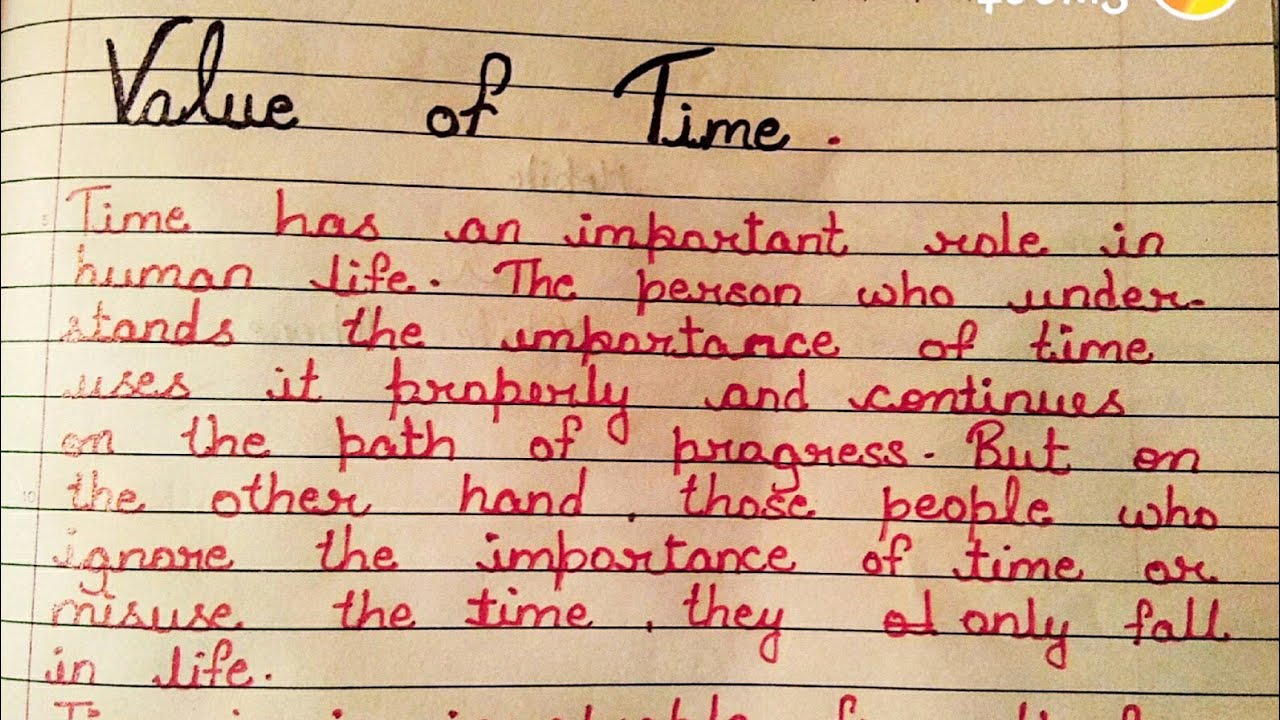 Value of Time.
Time has an important role in
human life. The person who under-
stands the importance of time
uses it properly and continues
on the path of progress. But on
the other hand, those people who
ignore the importance of time or
misuse the time, they only fall
in life.